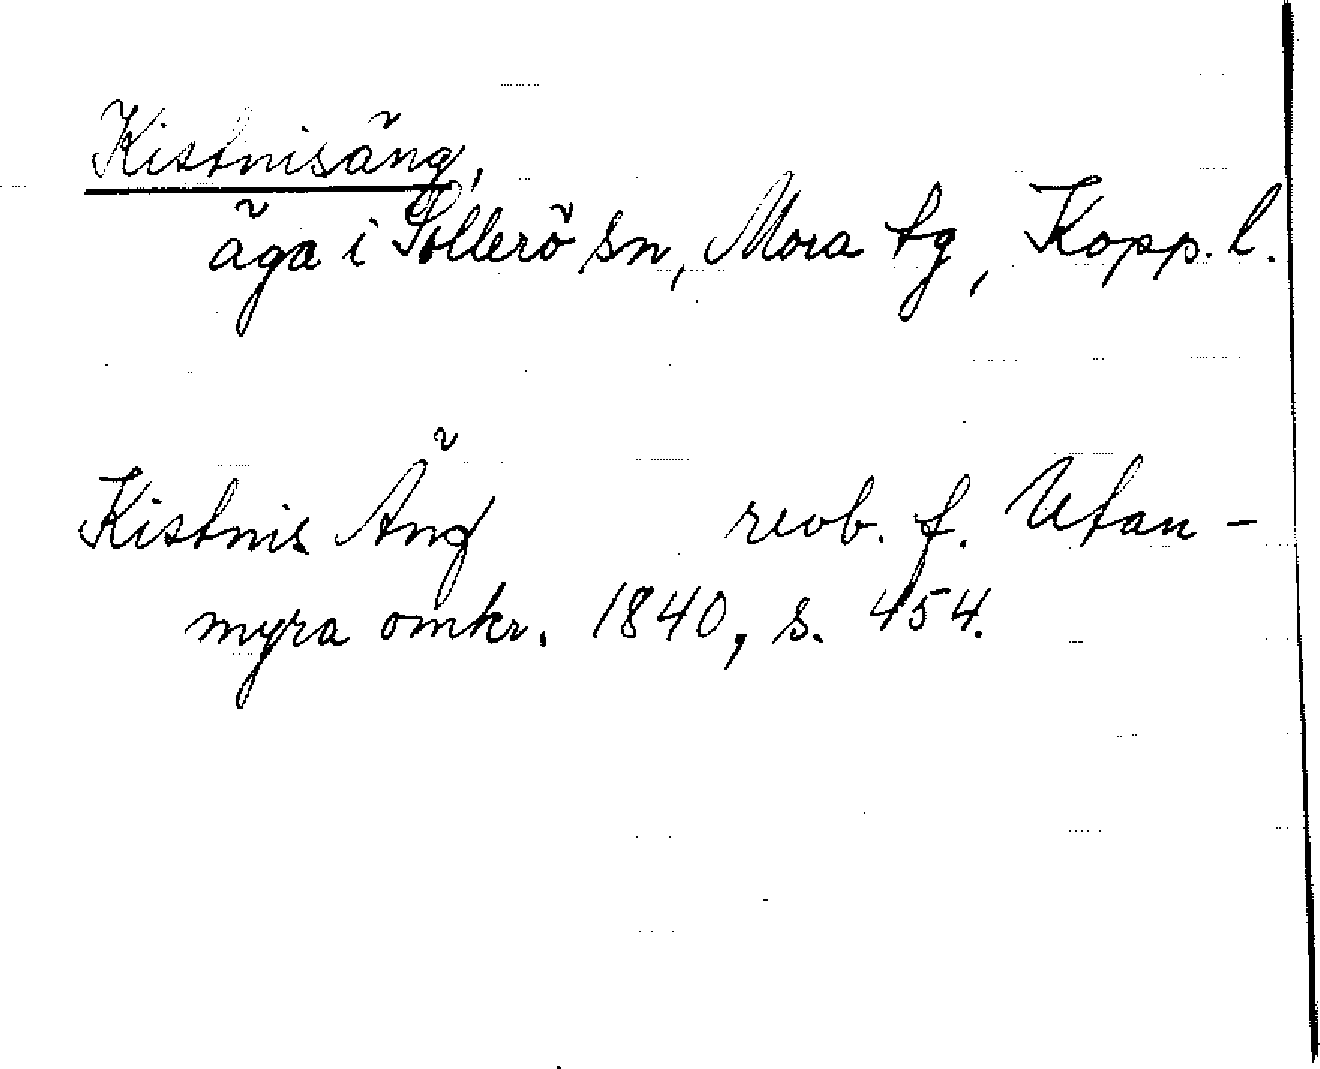 Kistnisäng,
äga i Sollerö sn, Mora tg, Kopp. l.
Kistnis Äng revb. f. Utan-
myra omkr. 1840, s. 454.